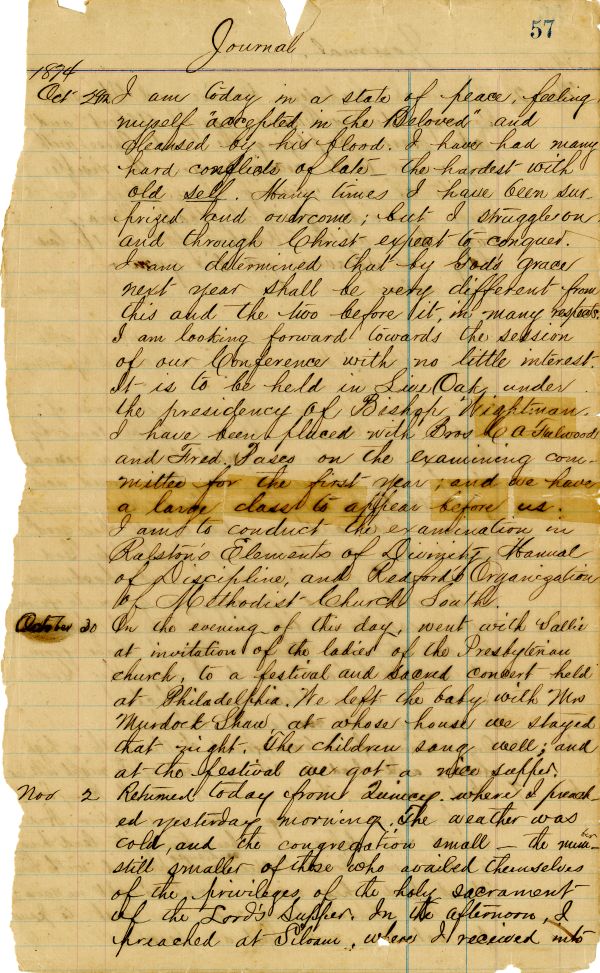 57
Journal
1874
Oct 29th I am today in a state of peace, feeling
myself "accepted in the Beloved" and
cleansed by his blood. I have had many
hard conflicts of late – the hardest with
old self. Many times I have been sur-
prized and overcome; but I struggle on
and through Christ expect to conquer.
I am determined that by God's grace
next year shall be very different from
this and the two before it, in many respects.
I am looking forward towards the session
of our Conference with no little interest.
It is to be held in Live Oak, under
the presidency of Bishop Wightman.
I have been placed with Bros C A Fulwood
and Fred. Pasco on the examining com-
mittee for the first year; and we have
a large class to appear before us.
I am to conduct the examination in
Ralston's Elements of Divinity, Manual
of Discipline, and Redford's Organization
of Methodist Church South.
October 30 On the evening of this day, went with Sallie
at invitation of the ladies of the Presbyterian
church, to a festival and sacred concert held
at Philadelphia. We left the baby with Mrs
Murdock Shaw, at whose house we stayed
that night. The children sang well; and
at the festival we got a nice supper.
Nov 2 Returned today from Quincy where I preach-
ed yesterday morning. The weather was
cold, and the congregation small – the number
still smaller of those who availed themselves
of the privileges of the holy sacrament
of the Lord's Supper. In the afternoon, I
preached at Siloam, where I received into